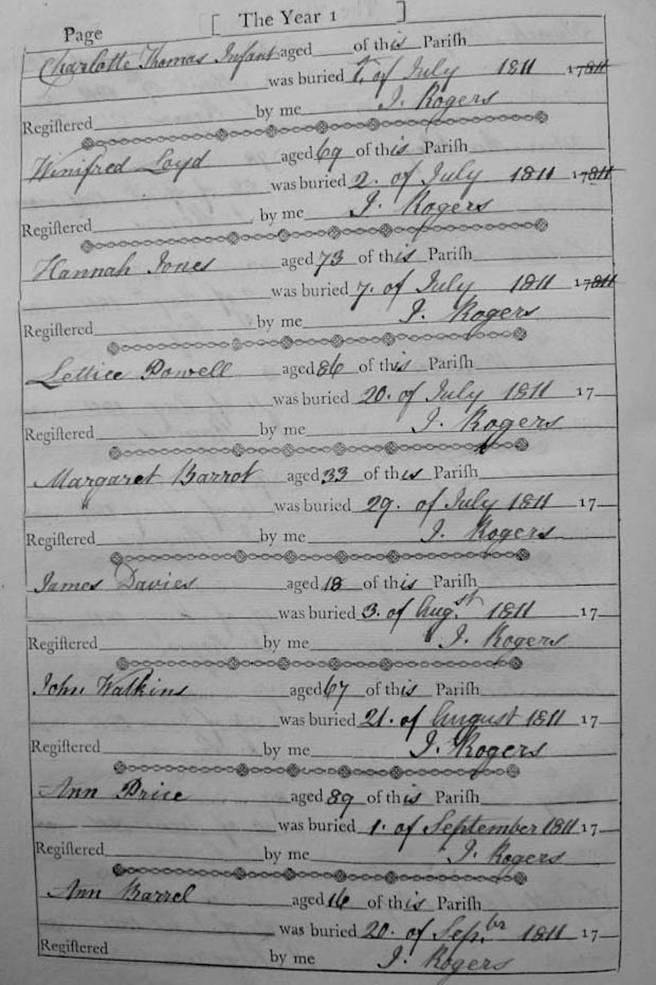 Page [ The Year 1 ]
Charlotte Thomas Infant aged of this Pariſh
was buried 1. of July 1811 17811
Regiſtered by me J. Rogers
Winifred Loyd aged 69 of this Pariſh
was buried 2. of July 1811 17811
Regiſtered by me J. Rogers
Hannah Jones aged 73 of this Pariſh
was buried 7. of July 1811 17811
Regiſtered by me J. Rogers
Lettice Powell aged 86 of this Pariſh
was buried 20. of July 1811 17
Regiſtered by me J. Rogers
Margaret Barrot aged 33 of this Pariſh
was buried 29. of July 1811 17
Regiſtered by me J. Rogers
James Davies aged 18 of this Pariſh
was buried 3. of Augst 1811 17
Regiſtered by me J. Rogers
John Watkins aged 67 of this Pariſh
was buried 21. of August 1811 17
Regiſtered by me J. Rogers
Ann Price aged 89 of this Pariſh
was buried 1. of September 1811 17
Regiſtered by me J. Rogers
Ann Barrel aged 16 of this Pariſh
was buried 20. of Sep.br 1811 17
Regiſtered by me J. Rogers